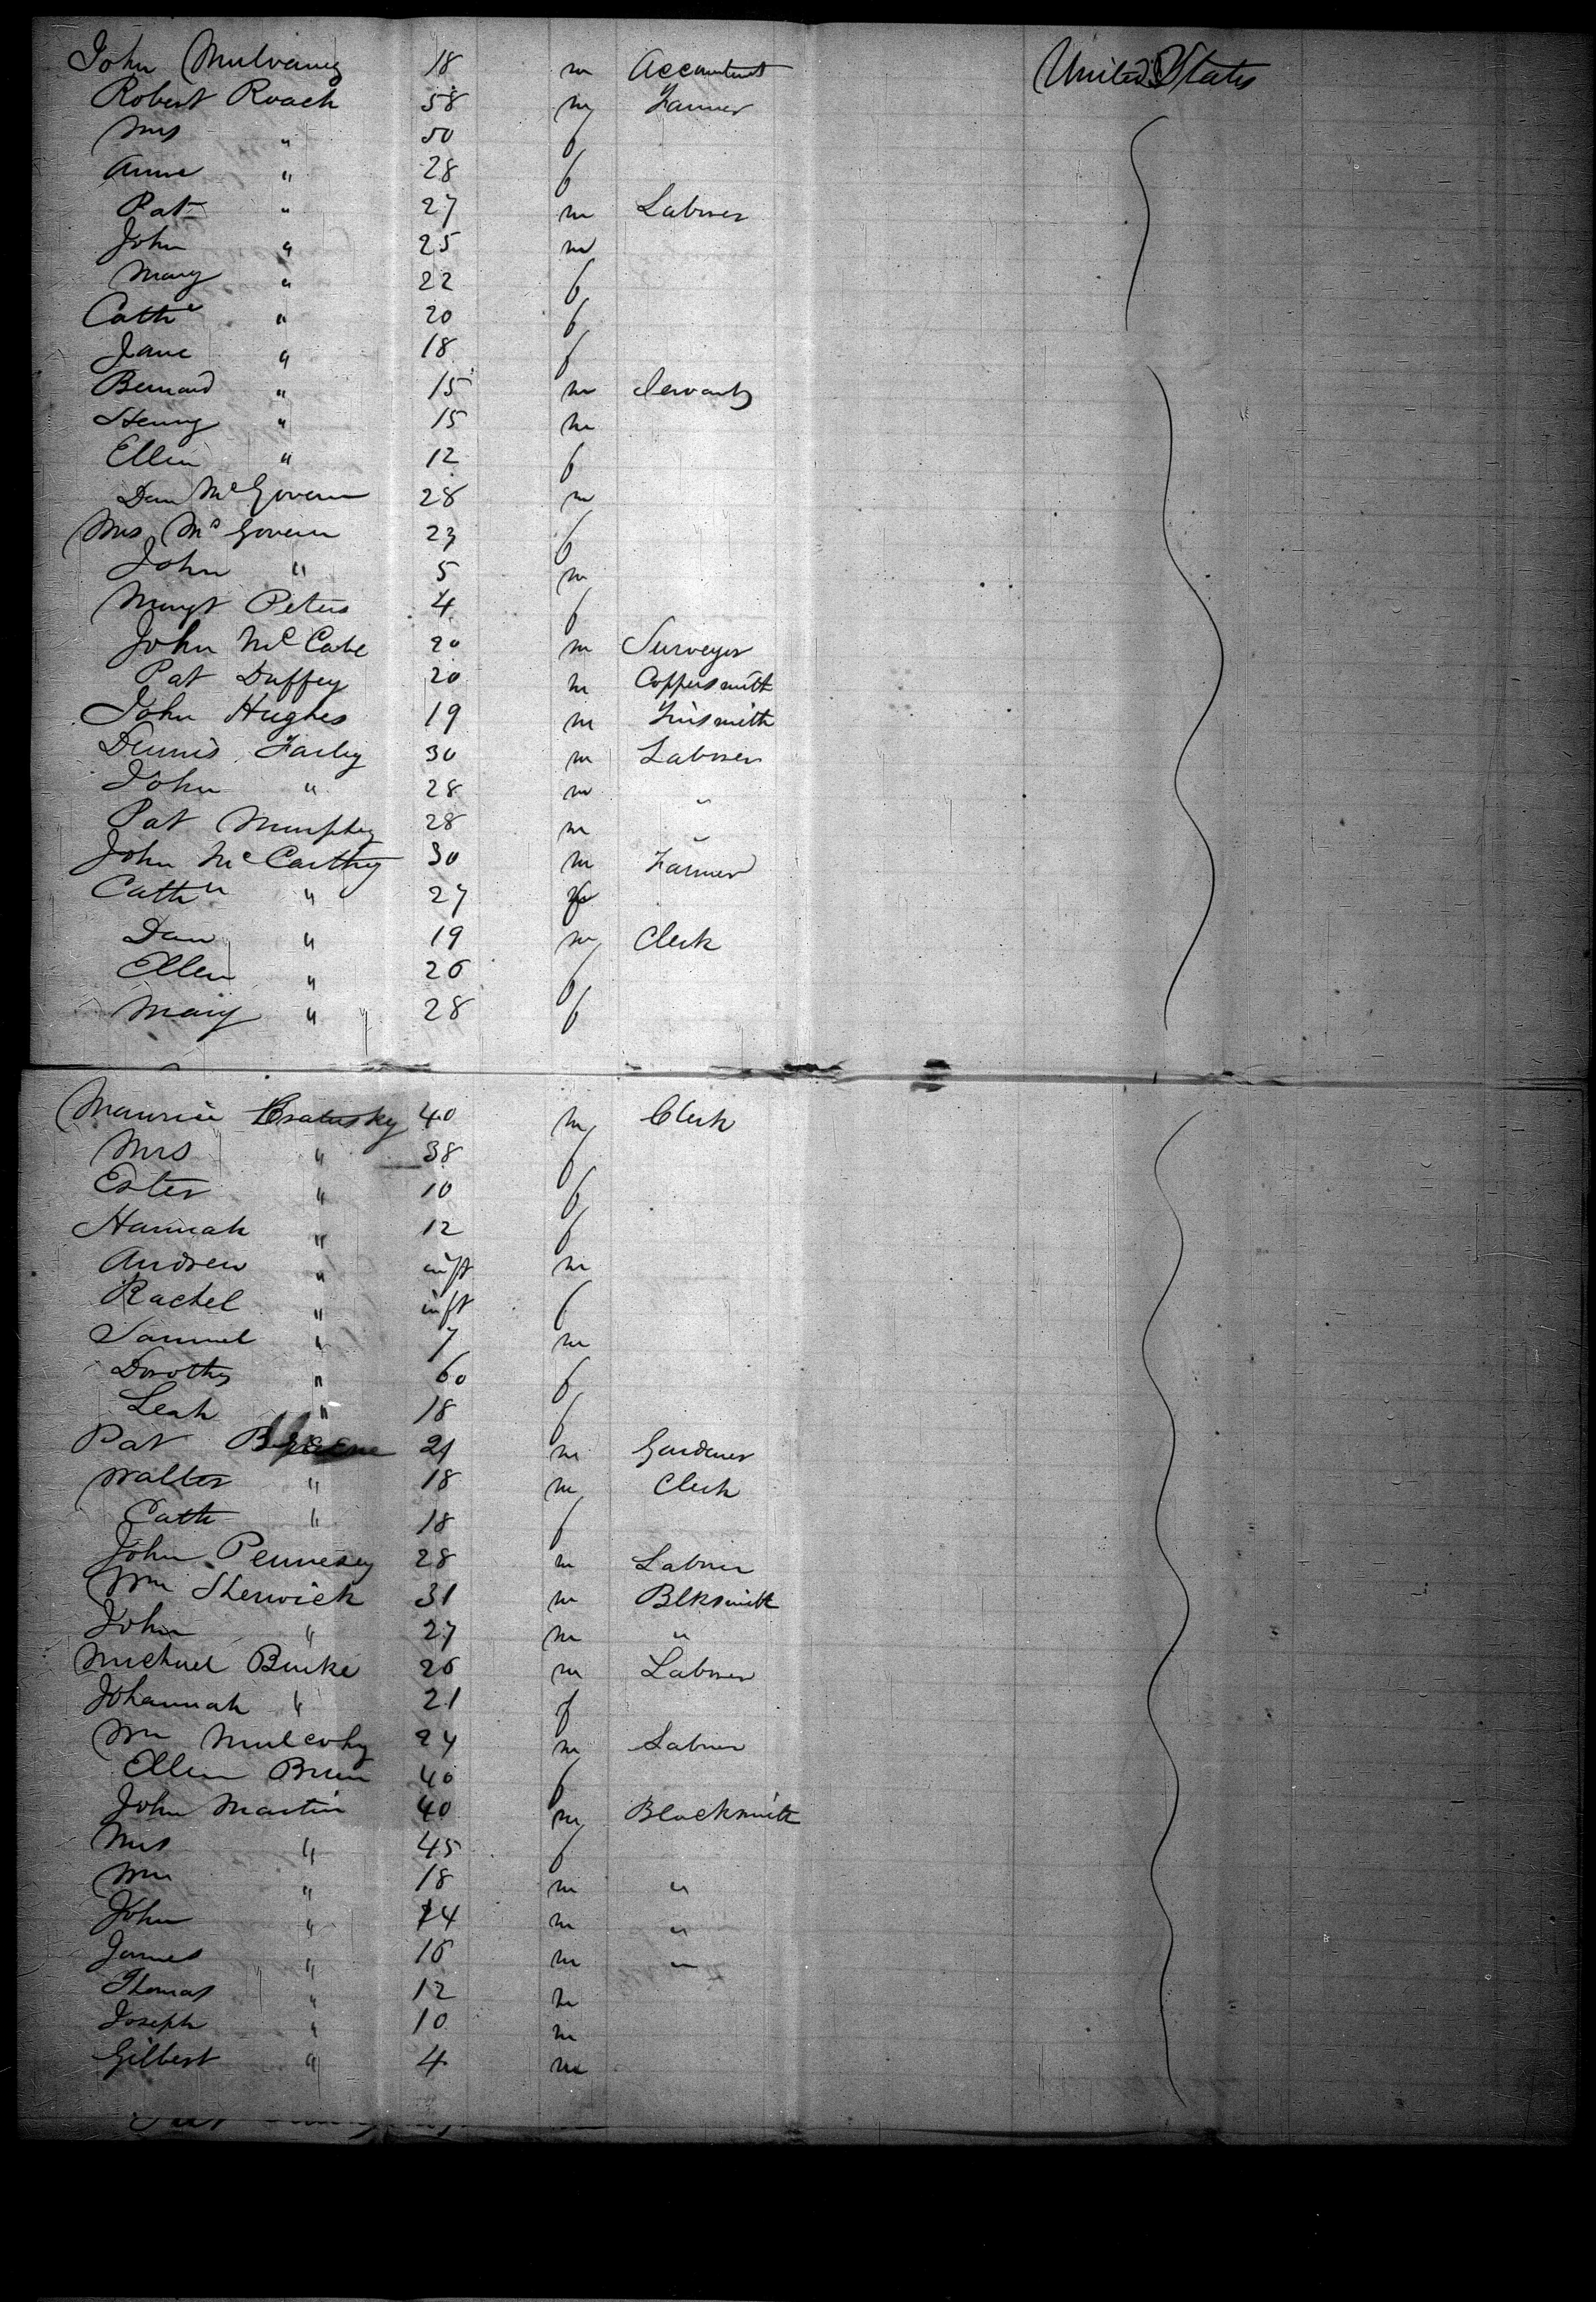 John Mulvaney 18 m Accountant United States
Robert Roach 58 m Farmer
Mrs " 50 f
Anne " 28 f
Pat " 27 m Laborer
John " 25 m
Mary " 22 f
Cathe " 20 f
Jane " 18 f
Bernard " 15 m Servants
Henry " 15 m
Ellen " 12 f
Dan McGovern 28 m
Mrs McGovern 23 f
John " 5 m
Margt Peters 4 f
John McCabe 20 m Surveyor
Pat Duffey 20 m Coppersmith
John Hughes 19 m Tinsmith
Dennis Farley 30 m Laborer
John " 28 m "
Pat Murphy 28 m "
John McCarthy 30 m Farmer
Cathn " 27 f
Dan " 19 m Clerk
Ellen " 26 f
Mary " 28 f
Maurice 40 m Clerk
Mrs " 38 f
Ester " 10 f
Hannah " 12 f
Andrew " inft m
Rachel " inft f
Samuel " 7 m
Dorothy " 60 f
Leah " 18 f
Pat 21 m Gardener
Walter " 18 m Clerk
Cath " 18 f
John Pennesey 28 m Laborer
Wm Sherwick 31 m Blksmith
John " 27 m "
Michael Burke 26 m Laborer
Johannah " 21 f
Wm Mulcohy 24 m Laborer
Ellen Brien 40 f
John Martin 40 m Blacksmith
Mrs " 45 f
Wm " 18 m "
John " 14 m "
James " 16 m "
Thomas " 12 m
Joseph " 10 m
Gilbert " 4 m